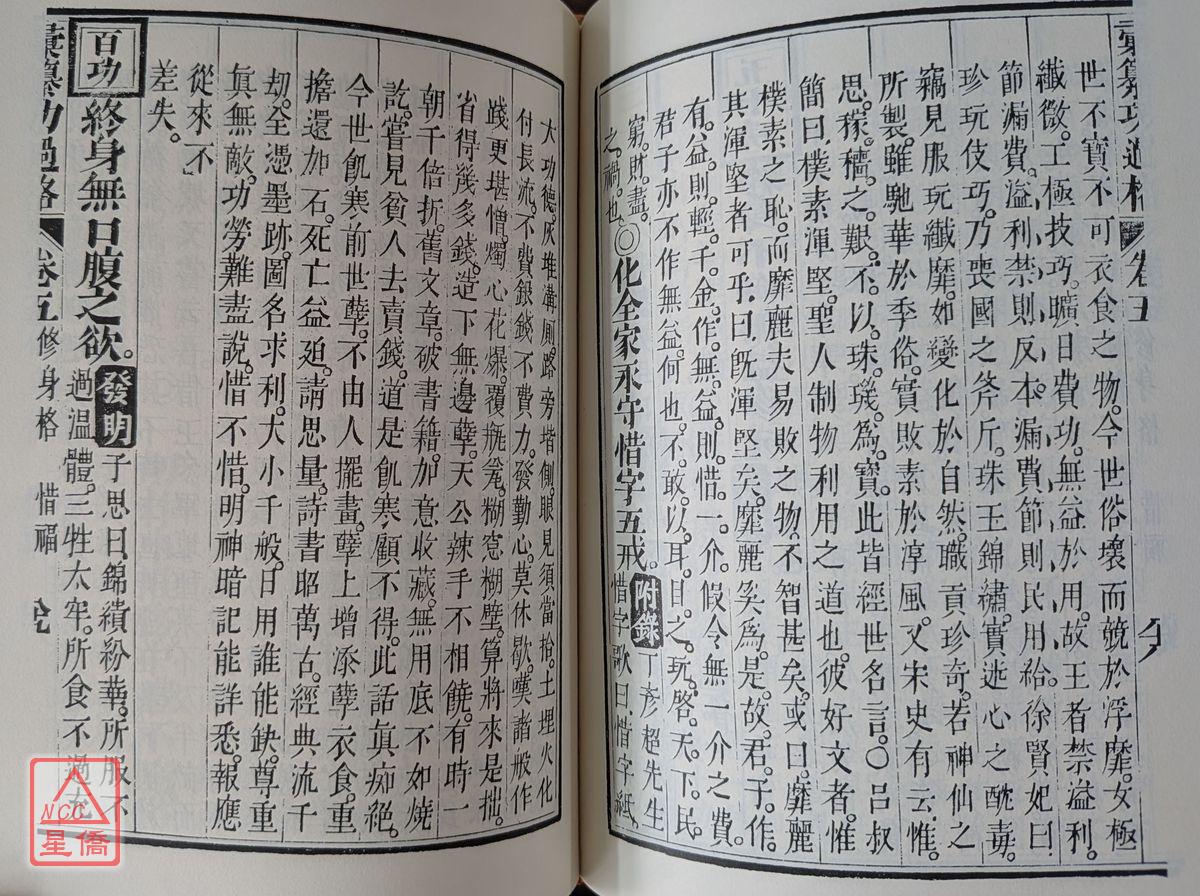 彙纂功過格 卷五
世不寶不可衣食之物。今世俗壞而競於浮靡。女極
纖微。工極技巧。曠日費功。無益於用。故王者禁溢利。
節漏費。溢利禁則反本。漏費節則民用給。徐賢妃曰
珍玩伎巧。乃喪國之斧斤。珠玉錦繡。實迷心之酖毒。
竊見服玩纖靡。如變化於自然。職貢珍奇。若神仙之
所製。雖馳華於季俗。實敗素於淳風。又宋史有云。惟
思。稼。穡之。艱。不。以。珠。璣。為。寶。此皆經世名言。〇呂叔
簡曰。樸素渾堅。聖人制物利用之道也。彼好文者。惟
樸素之恥。而靡麗夫易敗之物。不智甚矣。或曰。靡麗
其渾堅者可乎。曰。旣渾堅矣。靡麗奚為。是。故。君。子。作。
有。益。則。輕。千。金。作。無。益。則。惜。一。介。假令無一介之費。
君子亦不作無益。何也。不。敢。以。耳。目。之。玩。啓。天。下。民。
窮。財。盡。之。禍。也。
〇化全家永守惜字五戒。附錄 丁彥超先生
惜字歌曰。惜字紙。
大功德。厌堆溝厠。路旁堦側。眼見須當拾。土埋火化
付長流。不費銀錢不費力。發勤心。莫休歇。嘆諸般作
踐更堪憎。燭心花爆。覆瓶瓮。糊窓糊壁。算將來是拙。
省得幾多錢。造下無邊孽。天公辣手不相饒。有時一
朝千倍折。舊文章。破書籍。加意收藏。無用底不如燒
訖。嘗見貧人去賣錢。道是飢寒。顧不得。此話眞痴絕。
今世飢寒。前世孽。不由人擺畫。孽上增添孽。衣食。重
擔還加石。死亡益廹。請思量。詩書昭萬古。經典流千
刼。全憑墨跡。圖名求利。大小千般。日用誰能缺。尊重
眞無敵。功勞難盡說。惜不惜。明神暗記能詳悉。報應
從來不
差失。
百功 終身無口腹之欲。發明 子思曰。錦繢紛華。所服不
過溫體。三牲太牢。所食不過充
彙纂功過格 卷五 修身格 惜福
NCC
星僑